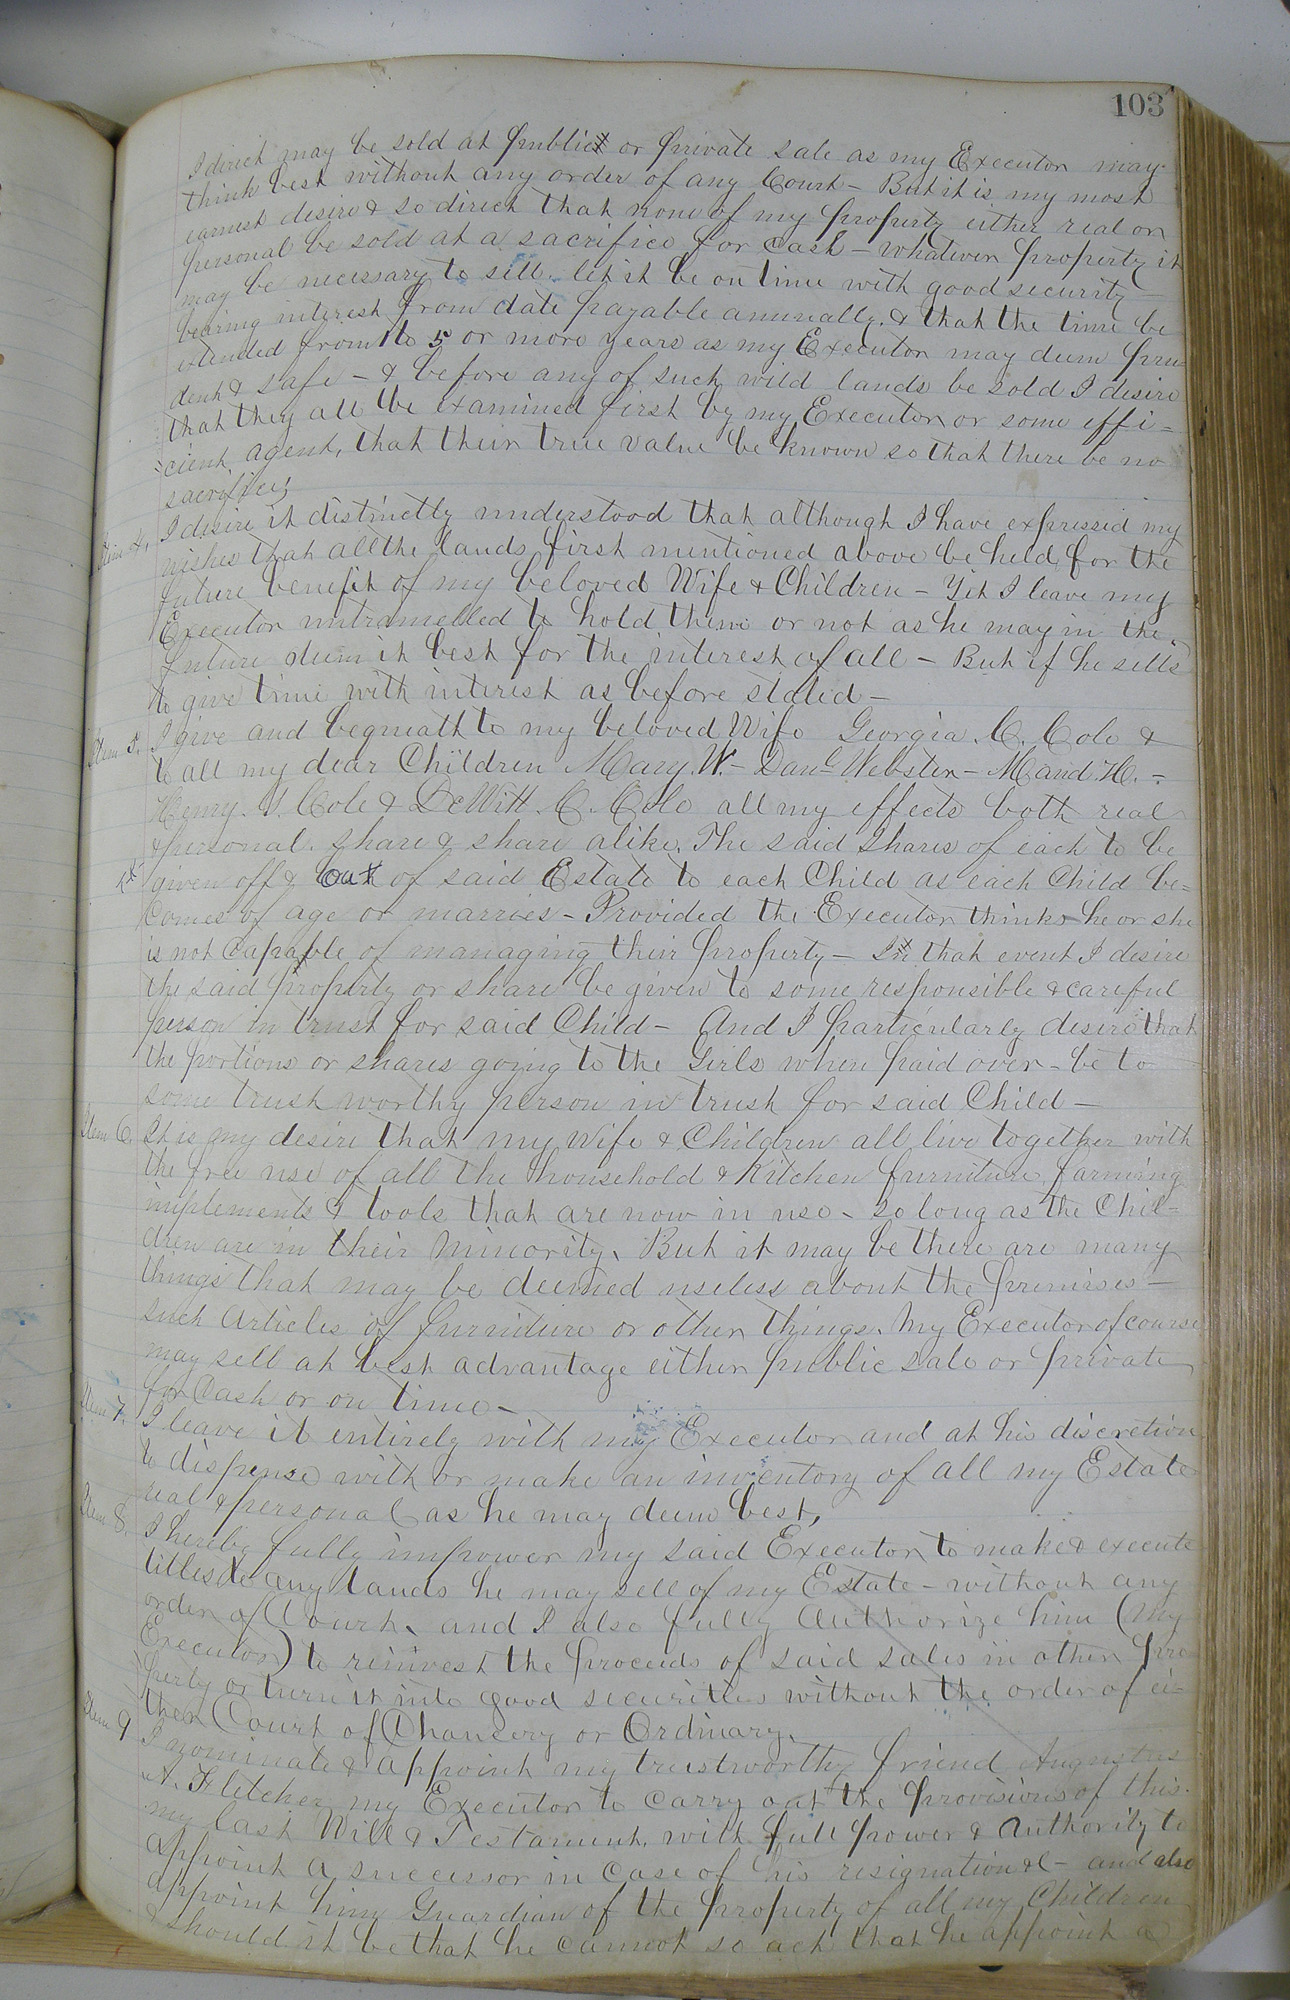 103
I direct may be sold at public or private sale as my Executor may
think best without any order of any Court – But it is my most
earnest desire & so direct that none of my property either real or
personal be sold at a sacrifice for cash – whatever property it
may be necessary to sell. let it be on time with good security –
bearing interest from date payable annually. & that the time be
extended from 1 to 5 or more years as my Executor may deem pru-
dent & safe – & before any of such wild lands be sold I desire
that they all be examined first by my Executor or some effi=
=cient agent, that their true value be known so that there be no
sacrifice;
Item 4. I desire it distinctly understood that although I have expressed my
wishes that all the lands first mentioned above be held for the
future benefit of my beloved Wife & Children – Yet I leave my
Executor untramelled to hold them or not as he may in the
future deem it best for the interest of all – But if he sells
to give time with interest as before stated –
Item 5. I give and bequeath to my beloved Wife Georgia. C. Cole &
to all my dear Children Mary. W. – Danl Webster – Maud. H. –
Henry. I. Cole & DeWitt. C. Cole all my effects both real
& personal. share & share alike. The said shares of each to be
given off & out of said Estate to each Child as each Child be=
comes of age or marries – Provided the Executor thinks he or she
is not capable of managing their property – In that event I desire
the said property or share be given to some responsible & careful
person in trust for said Child – And I particularly desire that
the portions or shares going to the Girls when paid over – be to
some trust worthy person in trust for said Child –
Item 6. It is my desire that my Wife & Children all live together with
the free use of all the household & Kitchen furniture, farming
implements & tools that are now in use – so long as the Chil=
dren are in their minority. But it may be there are many
things that may be deemed useless about the premises –
such articles of furniture or other things. My Executor of course
may sell at best advantage either public sale or private
for Cash or on time –
Item 7. I leave it entirely with my Executor and at his discretion
to dispense with or make an inventory of all my Estate
real & personal as he may deem best,
Item 8. I hereby fully impower my said Executor to make & execute
titles to any lands he may sell of my Estate – without any
order of Court, and I also fully Authorize him (my
Executor) to reinvest the proceeds of said sales in other pro
perty or turn it into good securities without the order of ei=
ther Court of Chancery or Ordinary.
Item 9 I nominate & appoint my trustworthy friend Augustus
A. Fletcher my Executor to carry out the provisions of this
my last Will & Testament. with full power & Authority to
appoint a successor in case of his resignation &c – and also
appoint him Guardian of the property of all my Children
& should it be that he cannot so act that he appoint a